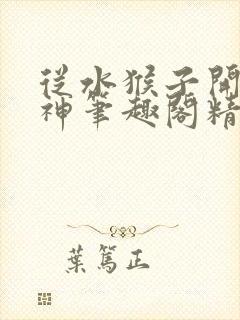 從水猴子開
神筆趣閣精
葉篤正